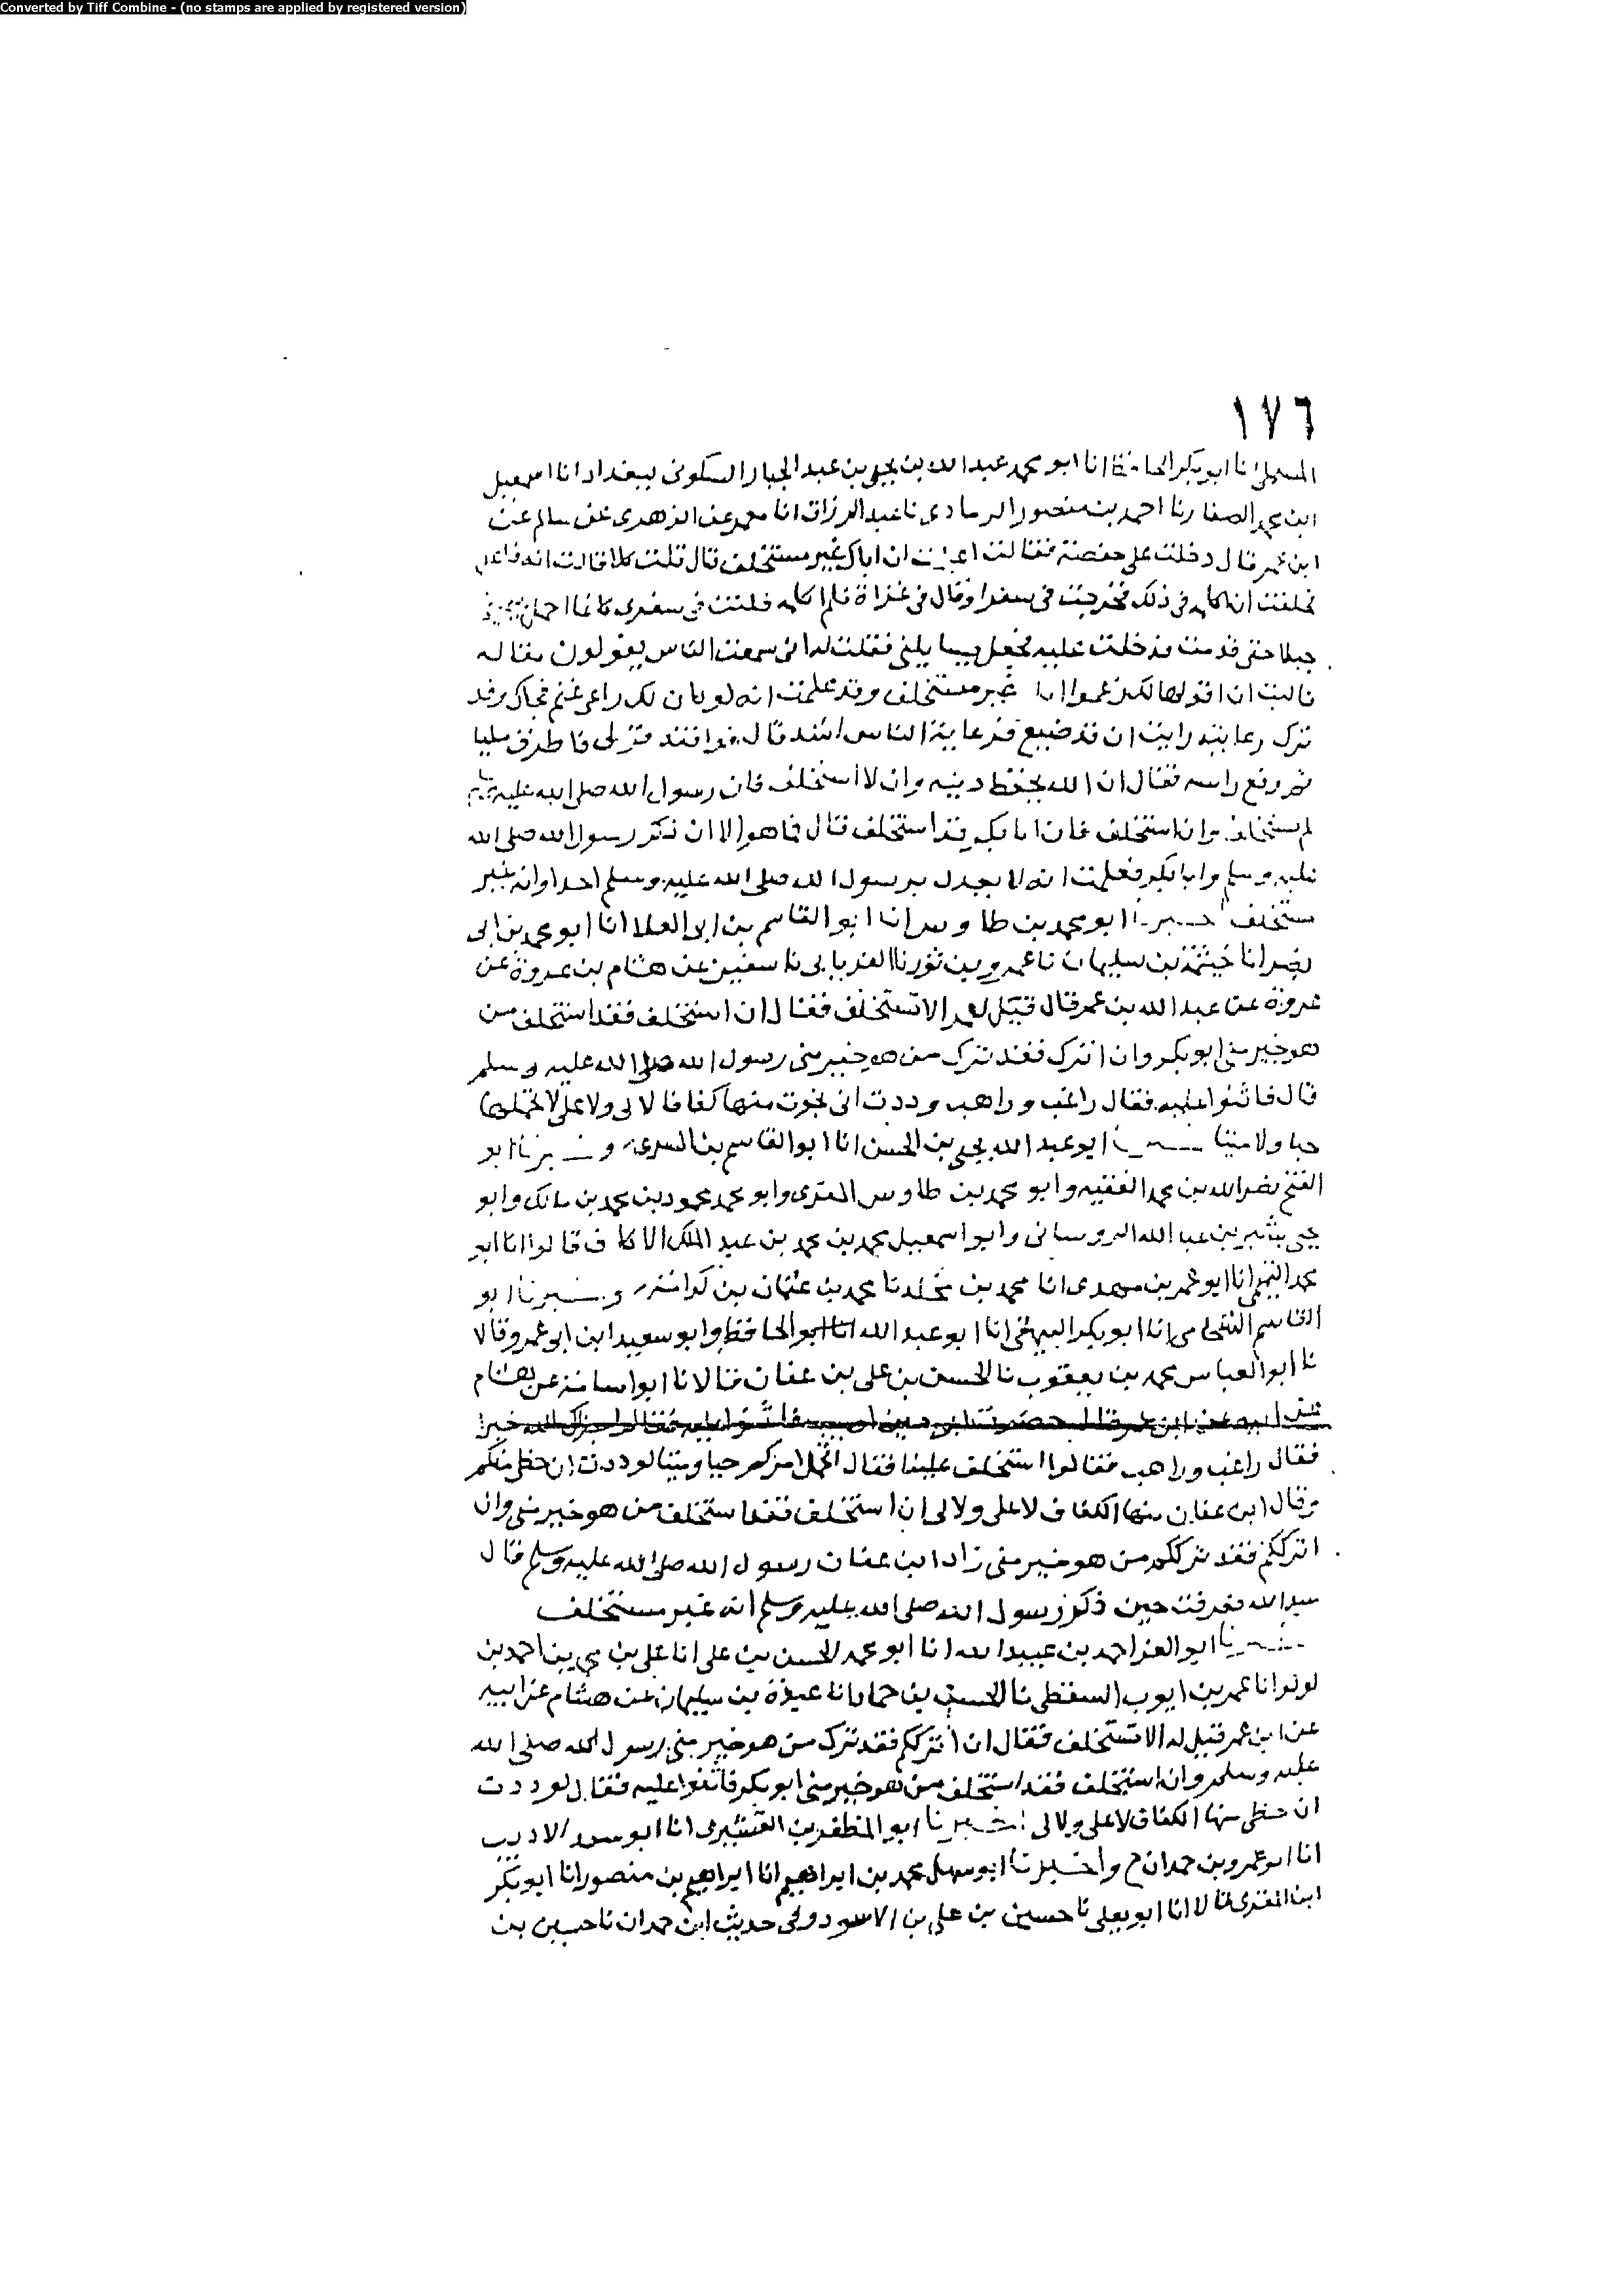 Converted by Tiff Combine - (no stamps are applied by registered version)
١٧٦
انا ابو بكر الحافظ انا ابو محمد عبد الله بن يحيى بن عبد الجبار السكونى ببغداد انا اسمعيل
ابن محمد الصفار نا احمد بن منصور الرمادى نا عبد الرزاق انا معمر عن الزهرى عن سالم عن
ابن عمر قال دخلت على حفصة فقالت ان اباك غير مستخلف قال قلت كلا قالت انه فاعل
فحلفت ان اكلمه فى ذلك فخرجت فى سفر او قال فى غزاة فلم اكلمه فكنت فى سفرى كانما احمل
جبلا حتى قدمت فدخلت عليه فجعل يسايلنى فقلت له انى سمعت الناس يقولون مقاله
فاليت ان اقولها لك زعموا انك غير مستخلف وقد علمت انه لو كان لك راعى غنم فجاك وقد
ترك رعايته رايت ان قد ضيع فرعاية الناس اشد قال فوافقه قولى فاطرق مليا
ثم رفع راسه فقال ان الله يحفظ دينه وان لا استخلف فان رسول الله صلى الله عليه وسلم
لم يستخلف وان استخلف فان ابا بكر قد استخلف قال فما هو الا ان ذكر رسول الله صلى الله
عليه وسلم وابا بكر فعلمت انه لا يعدل برسول الله صلى الله عليه وسلم احدا وانه غير
مستخلف اخبرنا ابو محمد بن طاوس انا ابو القاسم بن ابى العلا انا ابو محمد بن ابى
نصر انا خيثمة بن سليمان نا عمرو بن ثور نا الفريابى نا سفين عن هشام بن عروة عن
عروة عن عبد الله بن عمر قال قيل لعمر الا تستخلف فقال ان استخلف فقد استخلف من
هو خير منى ابو بكر وان اترك فقد ترك من هو خير منى رسول الله صلى الله عليه وسلم
قال فاثنوا عليه فقال راغب وراهب وددت انى نجوت منها كفافا لا لى ولا على لا اتحملها
حيا ولا ميتا اخبرنا ابو عبد الله يحيى بن الحسن انا ابو القاسم بن البسرى واخبرنا ابو
الفتح نصر الله بن محمد الفقيه وابو محمد بن طاوس المقرى وابو محمد محمود بن محمد بن مالك وابو
يحيى بشير بن عبد الله وابو اسمعيل محمد بن محمد بن عبد الملك الاكاف قالوا انا ابو
محمد التميمى انا ابو عمر بن مهدى انا محمد بن مخلد نا محمد بن عثمان بن كرامة واخبرنا ابو
القاسم الشحامى انا ابو بكر البيهقى انا ابو عبد الله الحافظ وابو سعيد ابن ابى عمرو قالا
نا ابو العباس محمد بن يعقوب نا الحسن بن على بن عفان قالا نا ابو اسامة عن هشام
عن ابيه عن ابن عمر قال حضرت ابى حين اصيب فاثنوا عليه فقالوا جزاك الله خيرا
فقال راغب وراهب فقالوا استخلف علينا فقال اتحمل امركم حيا وميتا لوددت ان حظى منكم
وقال ابن عفان منها الكفاف لا على ولا لى ان استخلف فقد استخلف من هو خير منى وان
اترككم فقد ترككم من هو خير منى زاد ابن عفان رسول الله صلى الله عليه وسلم قال
عبد الله فعرفت حين ذكر رسول الله صلى الله عليه وسلم انه غير مستخلف
اخبرنا ابو العز احمد بن عبيد الله انا ابو محمد الحسن بن على انا على بن محمد بن احمد بن
لولو انا عمر بن ايوب السقطى نا الحسن بن حماد نا عبدة بن سليمان عن هشام عن ابيه
عن ابن عمر قيل له الا تستخلف فقال ان اترككم فقد ترك من هو خير منى رسول الله صلى الله
عليه وسلم وان استخلف فقد استخلف من هو خير منى ابو بكر فاثنوا عليه فقال لوددت
ان حظى منها الكفاف لا على ولا لى اخبرنا ابو المظفر بن القشيرى انا ابو سعد الاديب
انا ابو عمرو بن حمدان ح واخبرنا ابو سهل محمد بن ابراهيم انا ابراهيم بن منصور انا ابو بكر
ابن المقرى قالا انا ابو يعلى نا حسين بن على بن الاسود وفى حديث ابن حمدان نا حسين بن